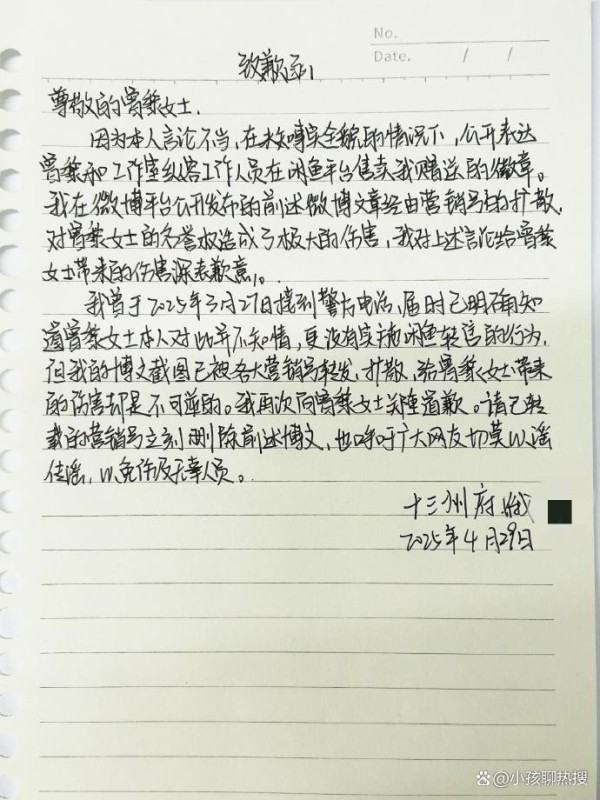 No.
Date. / /
致歉函
尊敬的曾黎女士、
因为本人言论不当，在未 实全貌 的情况下，公开表达
曾黎和工作室纵容工作人员在闲鱼平台售卖我赠送的徽章。
我在微博平台公开发布的前述微博文章经由营销号的扩散，
对曾黎女士的名誉权造成了极大的伤害，我对上述言论给曾黎
女士带来的伤害深表歉意。
我曾于2025年3月27日接到警方电话，届时已明确知
道曾黎女士本人对此并不知情，更没有实施闲鱼转售的行为，
但我的博文截图已被各大营销号转发、扩散，给曾黎女士带来
的伤害却是不可逆的。我再次向曾黎女士郑重道歉。请已转
载的营销号立刻删除前述博文，也呼吁广大网友切莫以谣
传谣，以免伤及无辜人员。
十三州府
2025年4月29日
@小孩聊热搜